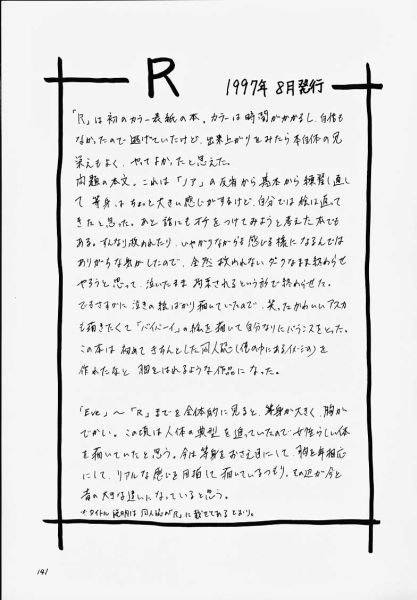 R 1997年 8月発行
「R」は初のカラー表紙の本。カラーは時間がかかるし、自信も
なかったので逃げていたけど、出来上がりをみたら本自体の見
栄えもよく、やってよかったと思えた。
問題の本文。これは「ノア」の反省から基本から練習し直し
て等身はちょっと大きい感じがするけど、自分では絵は直って
きたと思った。あと話にもオチをつけてみようと考えた本でも
ある。すんなり救われたり、いやがりながらも感じる様になるんでは
ありがちな気がしたので、全然救われないダークなまま終わらせ
やろうと思って、泣いたまま拘束されるという形で終わらせた。
でもさすがに泣きの絵ばかり描いていたので、笑ったかわいいアスカ
も描きたくて「バイバーイ」の絵を描いて自分なりにバランスをとった。
この本は初めてきちんとした同人誌(僕の中にあるイメージの)を
作れたなと胸をはれるような作品になった。
「Eve」〜「R」までを全体的に見ると、等身が大きく、胸が
でかい。この頃は人体の典型を追っていたので女性らしい体
を描いていたと思う。今は等身をおさえ目にして、胸を年相応
にして、リアルな感じを目指して描いているつもり。その辺が今と
昔の大きな違いになっていると思う。
※タイトル説明は同人誌の「R」に載せてあるとおり。
141